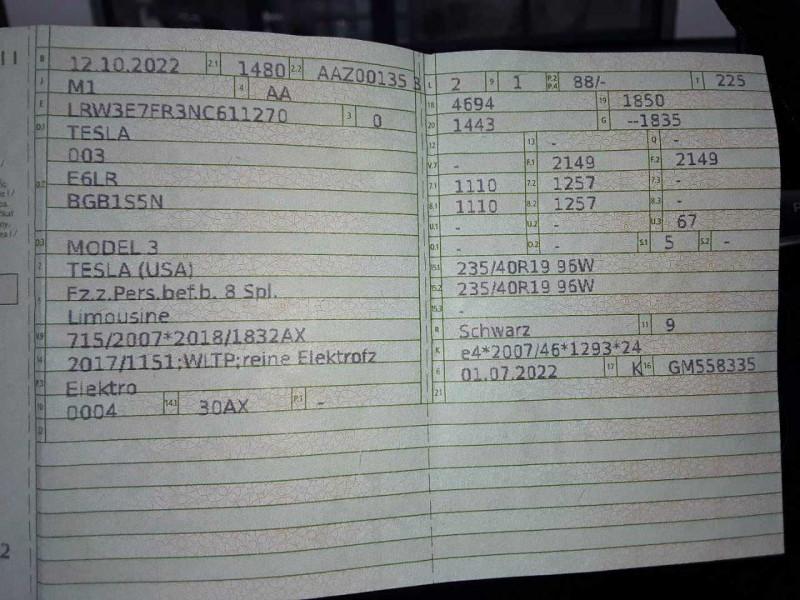 B 12.10.2022 2.1 1480 2.2 AAZ00135
J M1 4 AA
E LRW3E7FR3NC611270 3 0
D.1 TESLA
D.2 003
E6LR
BGB1S5N
D.3 MODEL 3
2 TESLA (USA)
5 Fz.z.Pers.bef.b. 8 Spl.
Limousine
V.9 715/2007*2018/1832AX
14 2017/1151;WLTP;reine Elektrofz
P.3 Elektro
10 0004 14.1 30AX P.1 -
22
L 2 9 1 P.2 P.4 88/- T 225
18 4694 19 1850
20 1443 G --1835
12 - 13 - Q -
V.7 - F.1 2149 F.2 2149
7.1 1110 7.2 1257 7.3 -
8.1 1110 8.2 1257 8.3 -
U.1 - U.2 - U.3 67
O.1 - O.2 - S.1 5 S.2 -
15.1 235/40R19 96W
15.2 235/40R19 96W
15.3 -
R Schwarz 11 9
K e4*2007/46*1293*24
6 01.07.2022 17 K 16 GM558335
21